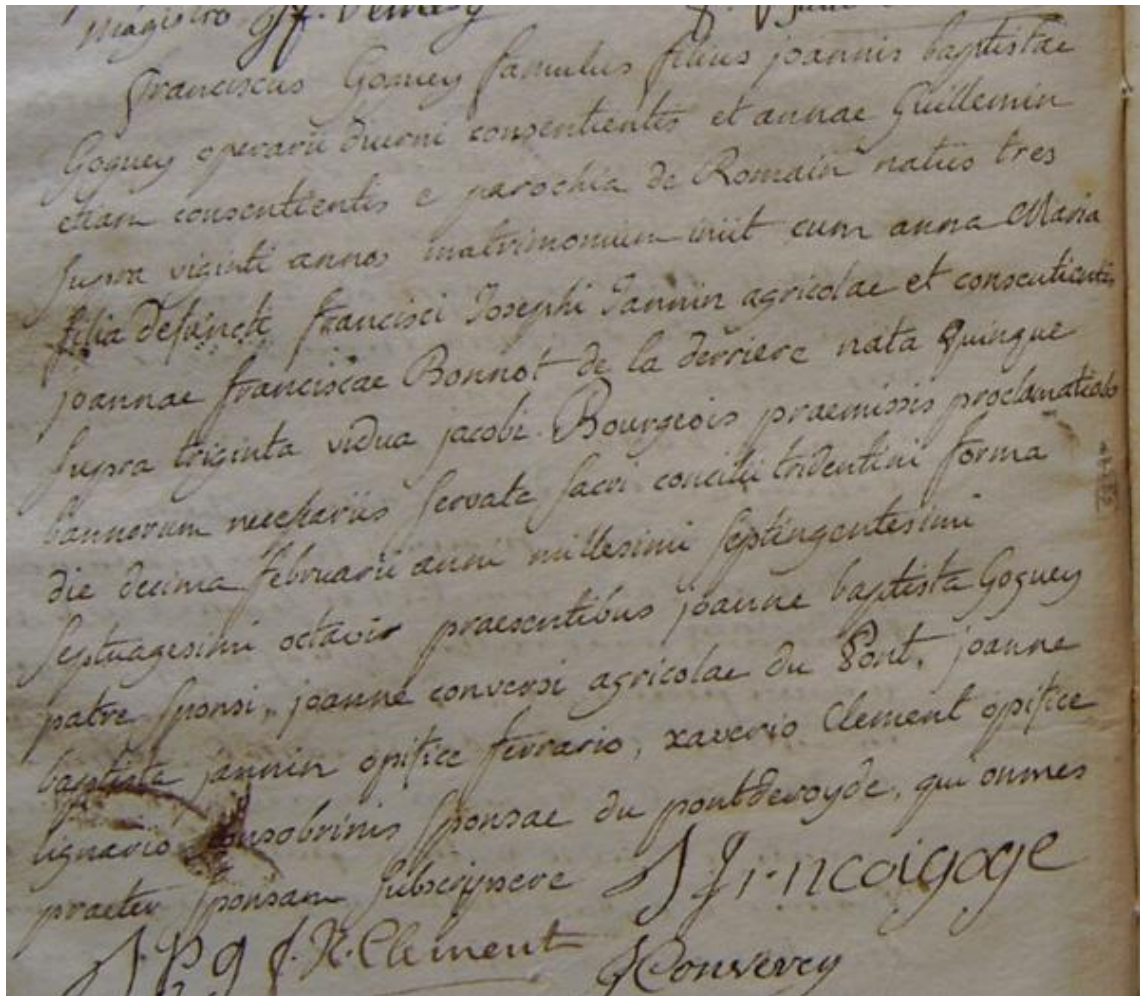 magistro
franciscus Goguey famulus filius joannis baptistae
Goguey operarii diurni consentientis et annae Guillemin
etiam consentientis e parochia de Romain natus tres
supra viginti annos matrimonium iniit cum anna Maria
filia defuncti francisci Josephi Jannin agricolae et consentientis
joannae franciscae Bonnot de la derriere nata quinque
supra triginta vidua jacobi Bourgeois praemissis proclamationibus
bannorum necessariis servata sacri concilii tridentini forma
die decima februarii anni millesimi septingentesimi
septuagesimi octavi praesentibus joanne baptista Goguey
patre sponsi, joanne conversi agricolae du Pont, joanne
baptista jannin opifice ferrario, xaverio Clement opifice
lignario consobrinis sponsae du pontdevoyde, qui omnes
praeter sponsam subscripsere J fr.ncoigoge
J P g f. X. Clement J Conversey